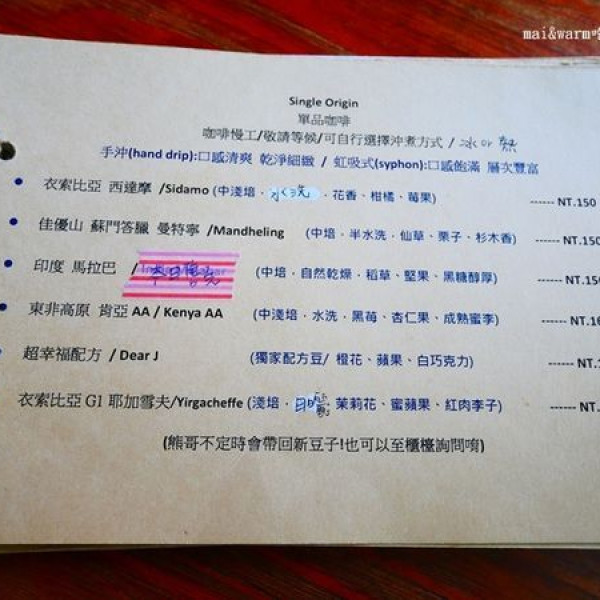 mai&warm
Single Origin
單品咖啡
咖啡慢工/敬請等候/可自行選擇沖煮方式 / 冰 or 熱
手沖(hand drip):口感清爽 乾淨細緻 / 虹吸式(syphon):口感飽滿 層次豐富
• 衣索比亞 西達摩 /Sidamo (中淺培．水洗．花香、柑橘、莓果) ------ NT.150
• 佳優山 蘇門答臘 曼特寧 /Mandheling (中培．半水洗．仙草、栗子、杉木香) ------ NT.150
• 印度 馬拉巴 / 本日售完 (中培．自然乾燥．稻草、堅果、黑糖醇厚) ------ NT.150
• 東非高原 肯亞 AA / Kenya AA (中淺培．水洗．黑莓、杏仁果、成熟蜜李) ------ NT.16
• 超幸福配方 / Dear J (獨家配方豆/ 橙花、蘋果、白巧克力) ------ NT.1
衣索比亞 G1 耶加雪夫/Yirgacheffe (淺培．日曬 茉莉花、蜜蘋果、紅肉李子) ------ NT.
(熊哥不定時會帶回新豆子!也可以至櫃檯詢問唷)